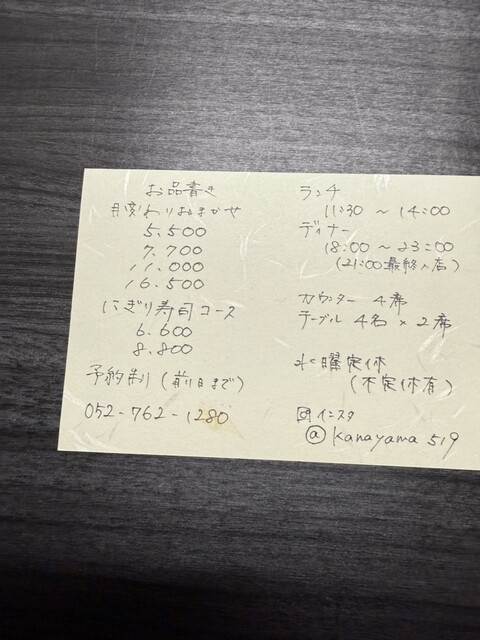 お品書き
月変わりおまかせ
5.500
7.700
11.000
16.500
にぎり寿司コース
6.600
8.800
予約制(前日まで)
052-762-1280
ランチ
11:30 ~ 14:00
ディナー
18:00 ~ 23:00
(21:00最終入店)
カウンター 4席
テーブル 4名 × 2席
水曜定休
(不定休有)
インスタ
@ kanayama 519